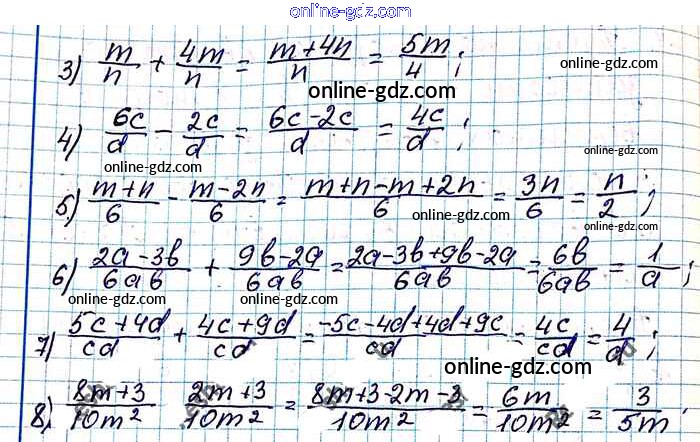 online-gdz.com
3) m/n + 4m/n = m+4n/n = 5m/4 ;
online-gdz.com
4) 6c/d - 2c/d = 6c-2c/d = 4c/d ;
online-gdz.com online-gdz.com
5) m+n/6 - m-2n/6 = m+n-m+2n/6 = 3n/6 = n/2 ;
online-gdz.com online-gdz.com
6) 2a-3b/6ab + 9b-2a/6ab = 2a-3b+9b-2a/6ab = 6b/6ab = 1/a ;
online-gdz.com online-gdz.com
7) 5c+4d/cd + 4c+9d/cd = -5c-4d+4d+9c/cd = 4c/cd = 4/d ;
online-gdz.com
8) 8m+3/10m² 2m+3/10m² = 8m+3-2m-3/10m² = 6m/10m² = 3/5m .